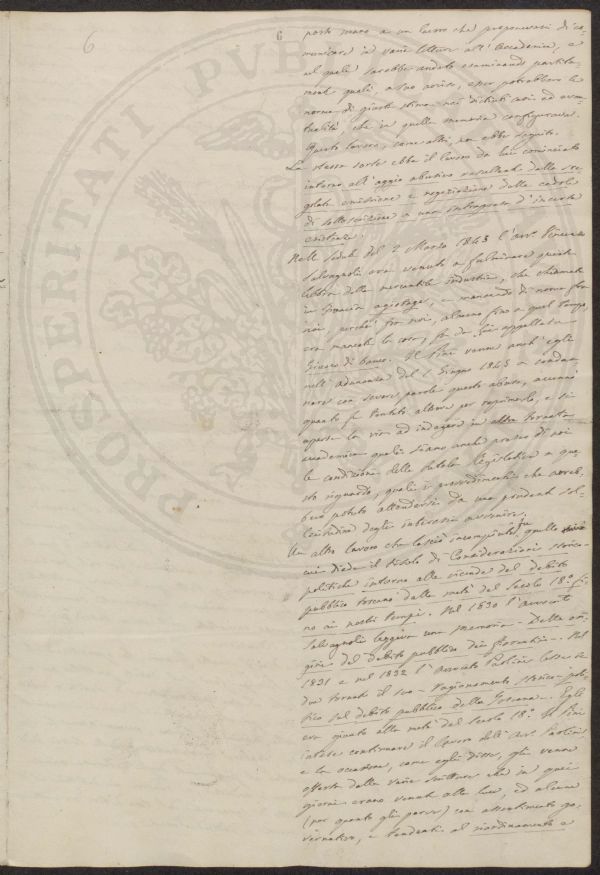 6
6
posto mano a un lavoro che proponevasi di co-
municare in varie letture all'Accademia, e
nel quale sarebbe andato esaminando partita-
mente quali, a suo avviso, esser potrebbero le
norme di giusta stima nei distinti casi ed even-
tualità, che in quella memoria configurava.
Questo lavoro, come altri, non ebbe seguito.
La stessa sorte ebbe il lavoro da lui cominciato
intorno all'aggio abusivo resultante dalla sre-
golata emissione e negoziazione delle cedole
di sottoscrizione a una intrapresa d'incerta
esistenza.
Nella seduta del 2 Marzo 1845 l'avv. Vincenzo
Salvagnoli era venuto a fulminare questa
lebbra della mercantile industria, che chiamata
in Francia agiotage, e mancando di nome fra
noi, perchè fra noi, almeno fino a quel tempo,
era mancata la cosa, fu da lui appellata
Giuoco di banco. Il Pini venne anch'egli
nell'adunanza del 1 Giugno 1845 a condan-
nare con severe parole questo abuso, accennò
quanto fu tentato altrove per reprimerlo, e si
aperse la via ad indagare in altra tornata
accademica quali siano anche presso di noi
le condizioni della patria legislazione a que-
sto riguardo, quali i provvedimenti che avreb-
bero potuto attendersi da una prudente sol-
lecitudine degli interessi avvenire.
Un altro lavoro che lasciò incompiuto fu quello
cui diede il titolo di Considerazioni storico-
politiche intorno alle vicende del debito
pubblico toscano dalla metà del Secolo 18.° fi-
no ai nostri tempi. Nel 1830 l'avvocato
Salvagnoli leggeva una memoria - Della ori-
gine del debito pubblico dei Fiorentini. - Nel
1831 e nel 1832 l'avvocato Paolini lesse in
due tornate il suo - ragionamento storico-poli-
tico sul debito pubblico della Toscana. - Egli
era giunto alla metà del Secolo 18.° Il Pini
intese continuare il lavoro dell'avv. Paolini
e la occasione, come egli disse, gli venne
offerta dalle varie scritture che in quei
giorni erano venute alla luce, ed alcune
(per quanto gli parve) con assentimento go-
vernativo, e tendenti al riordinamento e